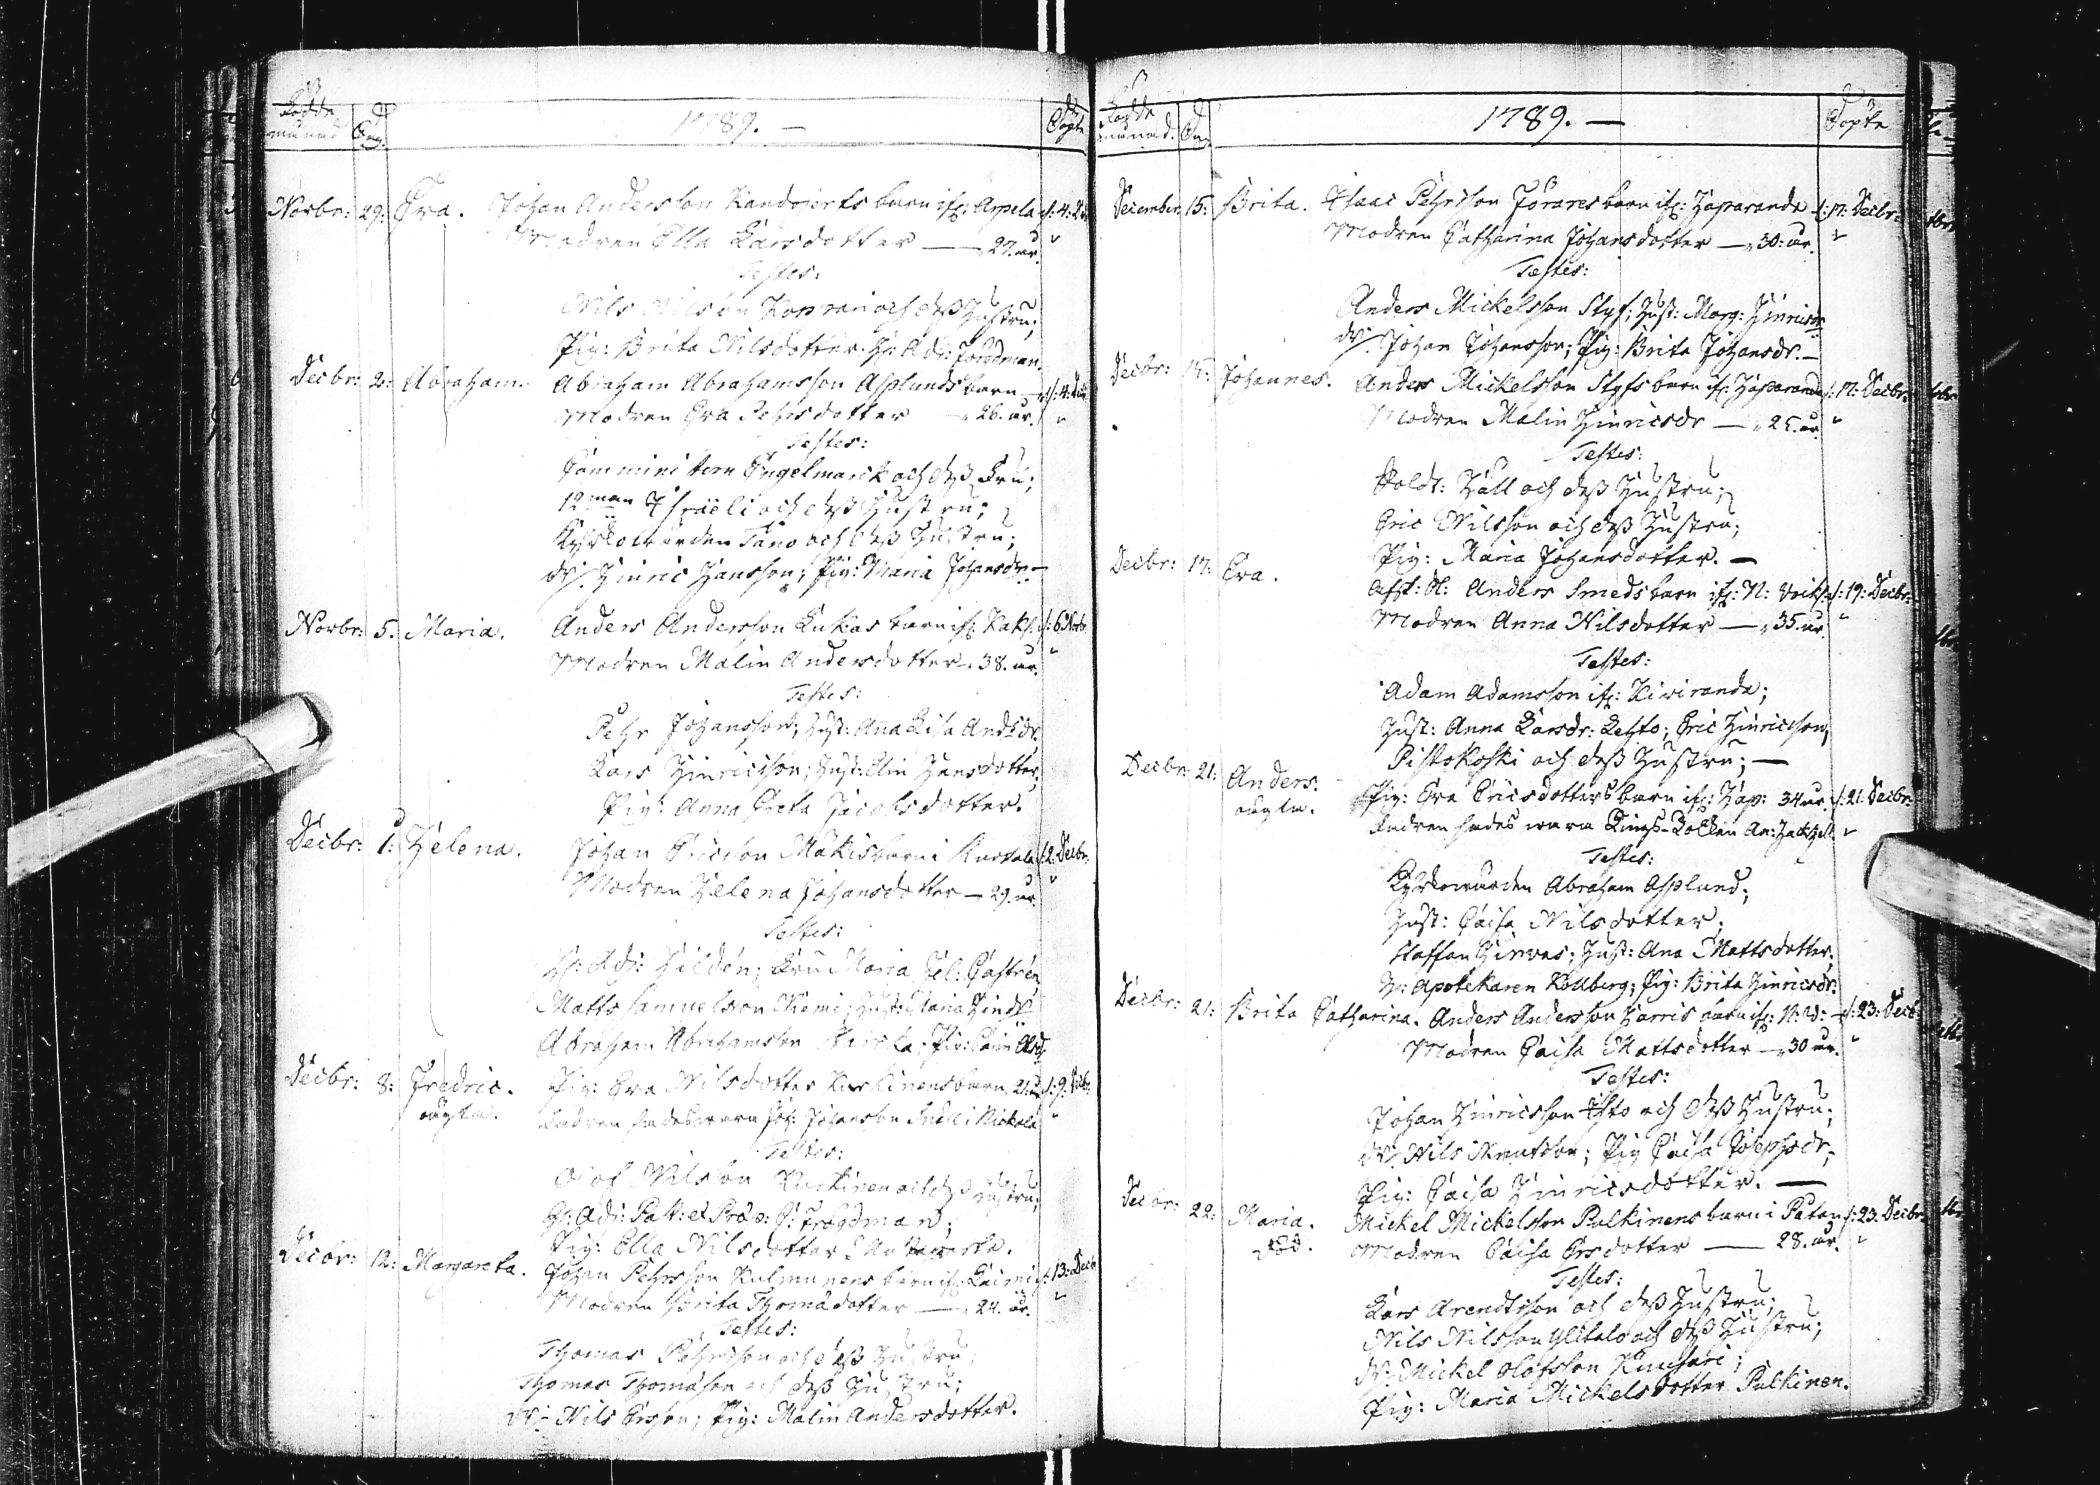 Födde
månad Dag. 1789. — Döpte
Novbr: 29: Eva. Johan Andersson barn ifr: Arpela d: 4:
Modren Ella Larsdotter — 27. år.
Testes:
Nils Nilsson och dess Hustru;
Pig: Brita Nilsdotter. Hr: Adj: Frodman.
Decbr: 2: Abraham. Abraham Abrahamsson Asplunds barn d: 4:
Modren Eva Pehrsdotter 26. år.
Testes:
Comministern Engelmarck och dess Fru;
12man Israëli och dess Hustru;
Kyrkowärden Tano och dess Hustru;
dr: Hinric Hansson; Pig: Maria Johansdr. —
Novbr: 5. Maria. Anders Andersson Lukas barn ifr: d: 6 Novbr.
Modren Malin Andersdotter. 38. år.
Testes:
Pehr Johansson; Hust: Ana Lisa Andsdr
Lars Hinricsson; Hust: Elin Hansdotter;
Pig: Anna Greta Jacobsdotter.
Decbr: 1: Helena. Johan Ericsson Mäkis barn i d: 2: Decbr.
Modren Helena Johansdotter — 29. år.
Testes:
Hr: Adj: Hildén; Fru Maria Castrén
Matts Samuelsson Niemi; Hust: Maria
Abraham Abrahamsson Pig:
Decbr: 8: Fredric. Pig: Eva Nilsdotter Kurkinens barn, 21. år d: 9: Decbr:
oägta. Fadren sades wara Joh: Johansson
Testes:
Olof Nilsson Kurkinen och dess Hustru;
Hr: Adj: Past: et Præp: J: Frodman;
Pig: Ella Nilsdotter
Decbr: 12: Margareta. Johan Pehrsson Kulmunens barn ifr: d: 13: Decbr
Modren Brita Thomædotter — 24. år.
Testes:
Thomas Pehrsson och dess Hustru;
Thomas Thomæson och dess Hustru;
dr: Nils Ersson; Pig: Malin Andersdotter.
Födde
månad. Dag 1789. — Döpte
December 15: Brita. Isaac Pehrsson barn ifr: Haparanda d: 17: Decbr:
Modren Catharina Johansdotter — 30: år.
Testes:
Anders Mickelsson Styf; Hust: Marg: Hinricsdr
dr: Johan Johansson; Pig: Brita Johansdr. —
Decbr: 15: Johannes. Anders Mickelsson Styfs barn ifr: Haparanda d: 17: Decbr:
Modren Malin Hinricsdr — 25. år.
Testes:
Sold: Häll och dess Hustru;
Eric Nilsson och dess Hustru;
Pig: Maria Johansdotter. —
Decbr: 17: Eva. Anders Smeds barn ifr: N: d: 19: Decbr:
Modren Anna Nilsdotter — 35. år.
Testes:
Adam Adamsson ifr: Kiviranda;
Hust: Anna Larsdr: Lehto; Eric Hinricsson
Pistokoski och dess Hustru; —
Decbr: 21: Anders. Pig: Eva Ericsdotters barn ifr: Hap: 34 år d: 21: Decbr:
oägta. Fadren sades wara
Testes:
Kyrkowärden Abraham Asplund;
Hust: Caisa Nilsdotter;
Staffan Hirvas; Hust: Ana Mattsdotter;
Hr: Apotekaren Kollberg; Pig: Brita Hinricsdr:
Decbr: 21: Brita Catharina. Anders Andersson Harris barn ifr: N: d: 23: Decbr
Modren Caisa Mattsdotter — 30 år.
Testes:
Johan Hinricsson Isto och dess Hustru;
dr: Nils Knutsson; Pig Caisa Josephsdr;
Pig: Caisa Hinricsdotter. —
Decbr: 22: Maria. Mickel Mickelsson Pulkinens barn i d: 23: Decbr:
död. Modren Caisa Ersdotter — 28. år.
Testes:
Lars Arendtsson och dess Hustru;
Nils Nilsson Ylitalo och dess Hustru;
dr: Mickel Olofsson Kuusari;
Pig: Maria Mickelsdotter Pulkinen.